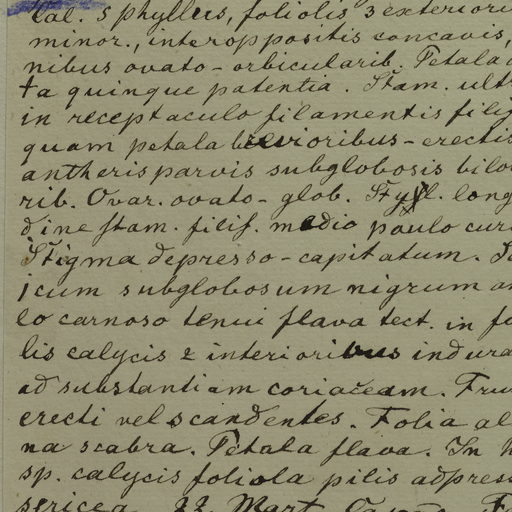 Cal. 5 phyllus, foliolis 3 exteriori
minor., interoppositis concavis,
nibus ovato-orbicularib. Petala
ta quinque patentia. Stam. ult
in receptaculo filamentis fili
quam petala brevioribus-erectis
antheris parvis subglobosis bilo
rib. Ovar. ovato-glob. Styl. long
dine stam. filif. medio paulo cur
Stigma depresso-capitatum.
icum subglobosum nigrum a
lo carnoso tenui flava tect. in fo
lis calycis 2 interioribus indura
ad substantiam coriaceam. Fru
erecti vel scandentes. Folia al
na scabra. Petala flava. In
sp. calycis foliola pilis adpres
sericea. 22. Mart.